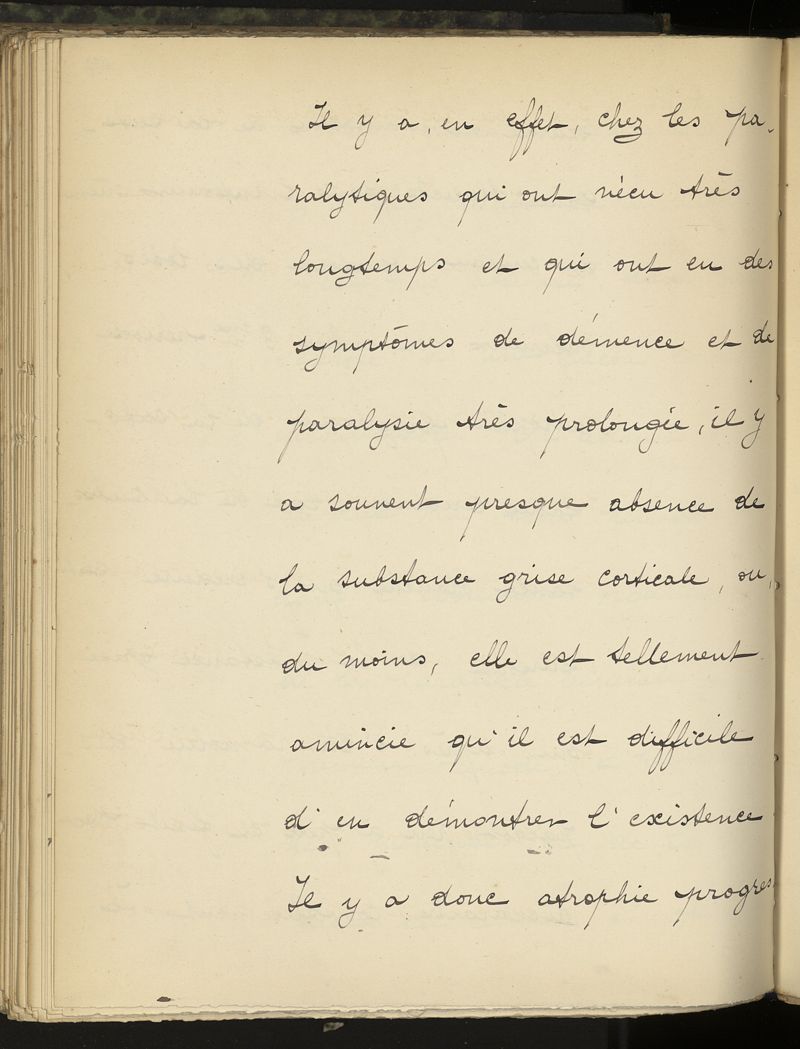 Il y a, en effet, chez les pa-
ralytiques qui ont vécu très
longtemps et qui ont eu des
symptômes de démence et de
paralysie très prolongée, il y
a souvent presque absence de
la substance grise corticale, ou,
du moins, elle est tellement
amincie qu'il est difficile
d'en démontrer l'existence
Il y a donc atrophie progres